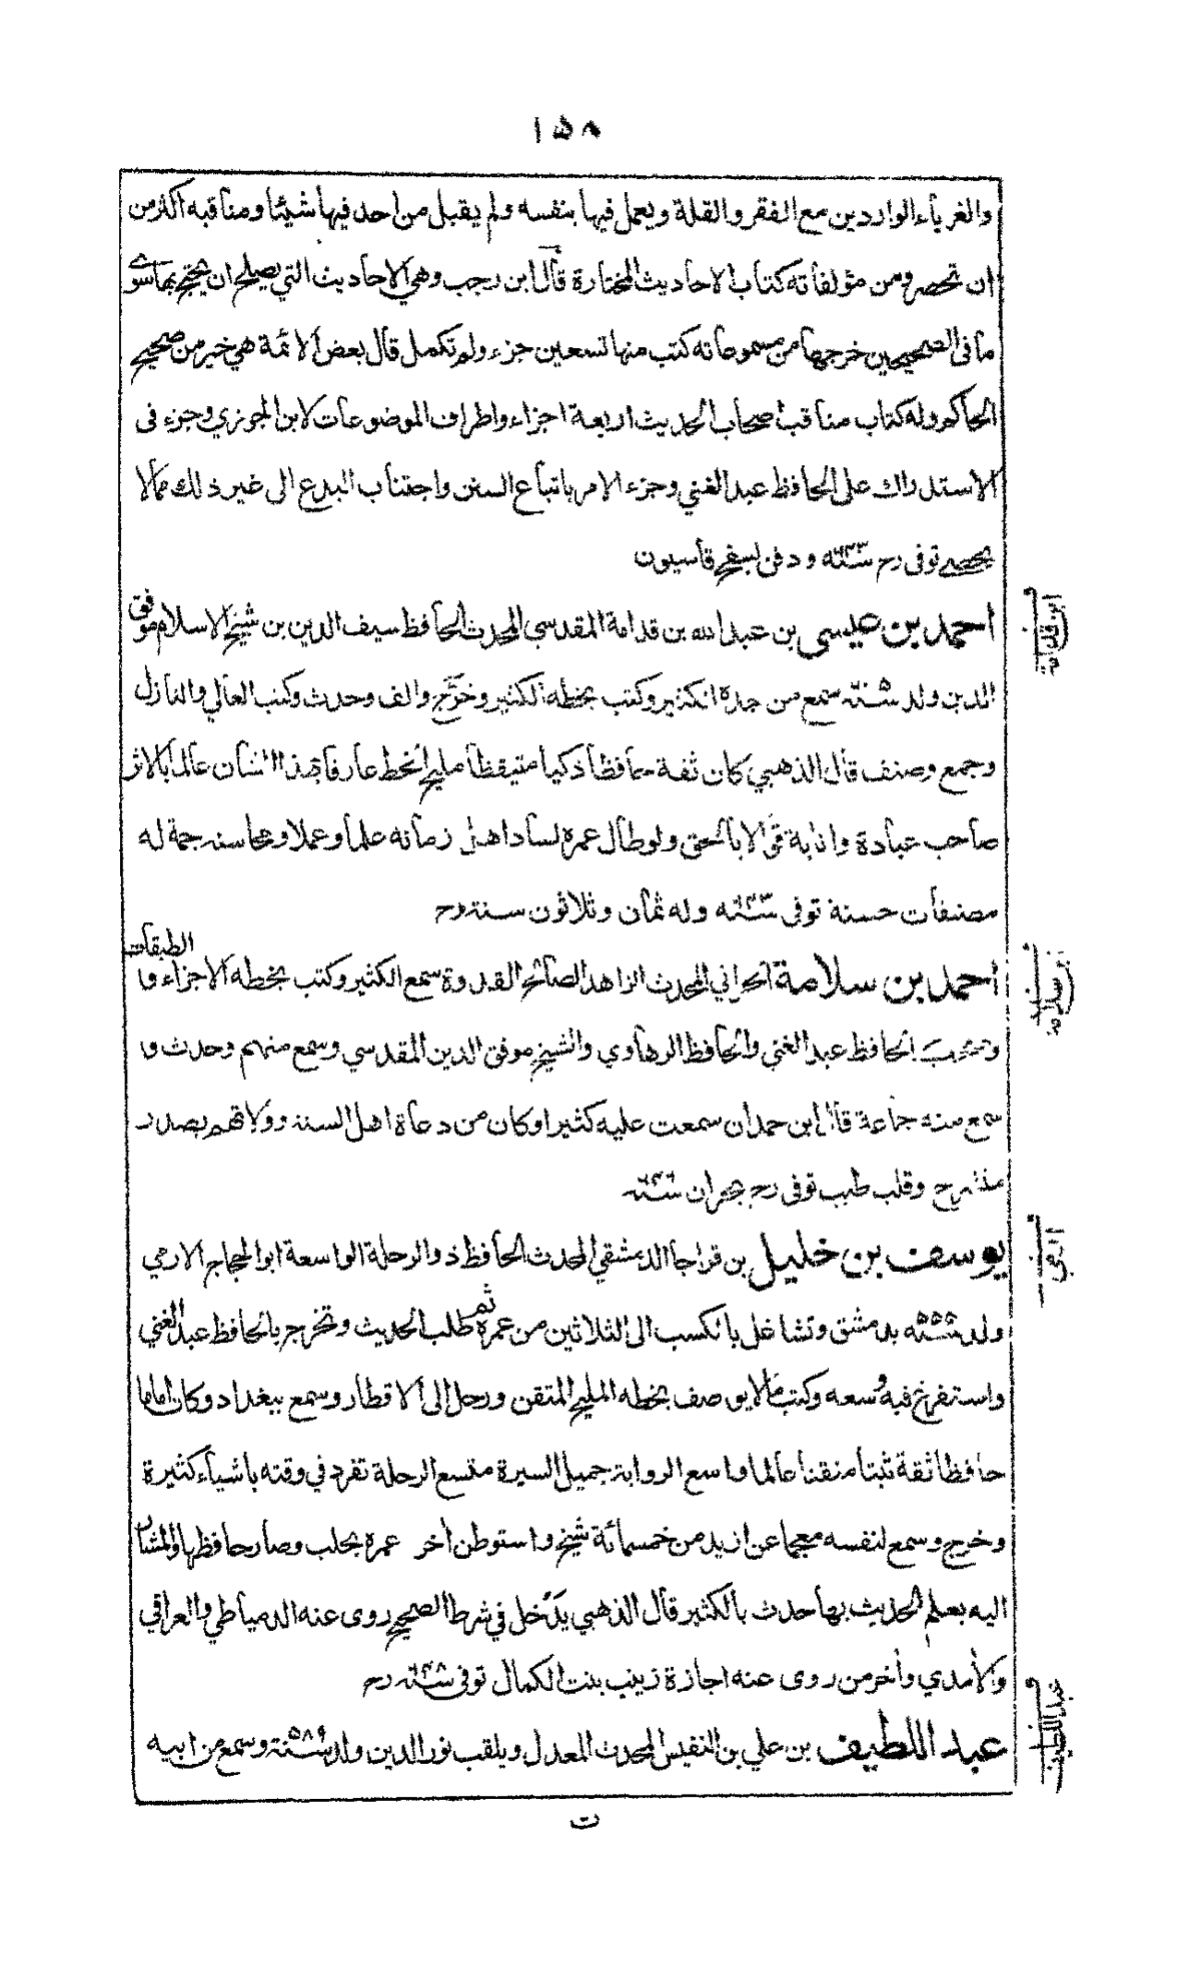 ١٥٨
والغرباء الواردين مع الفقر والقلة ويعمل فيها بنفسه ولم يقبل من احد فيها شيئا ومناقبه اكثر من
ان تحصر ومن مؤلفاته كتاب الاحاديث المختارة قال ابن رجب وهي الاحاديث التي يصلح ان يحتج بها سوى
ما فى الصحيحين خرجها من مسموعاته كتب منها تسعين جزء ولم تكمل قال بعض الائمة هي خير من صحيح
الحاكم وله كتاب مناقب اصحاب الحديث اربعة اجزاء واطراف الموضوعات لابن الجوزي وجزء فى
الاستدراك على الحافظ عبد الغني وجزء الامر باتباع السنن واجتناب البدع الى غير ذلك مما لا
يحصى توفى رح ٦٤٣سنه ودفن بسفح قاسيون
احمد بن عيسى بن عبد الله بن قدامة المقدسي المحدث الحافظ سيف الدين بن شيخ الاسلام موفق
الدين ولد سنة سمع من جده الكثير وكتب بخطه الكثير وخرّج والف وحدث وكتب العالي والنازل
وجمع وصنف قال الذهبي كان ثقة حافظا ذكيا متيقظا مليح الخط عارفا بهذا الشأن عالما بالاثر
صاحب عبادة وانابة قوّالا بالحق ولو طال عمره لساد اهل زمانه علما وعملا ومحاسنه جمة له
مصنفات حسنة توفى ٦٤٣سنه وله ثمان وثلاثون سنة رح
احمد بن سلامة الحراني المحدث الزاهد الصالح القدوة سمع الكثير وكتب بخطه الاجزاء و الطبقات
وصحب الحافظ عبد الغني والحافظ الرهاوي والشيخ موفق الدين المقدسي وسمع منهم وحدث و
سمع منه جماعة قال ابن حمدان سمعت عليه كثيرا وكان من دعاة اهل السنة وولاتهم بصدر
منشرح وقلب طيب توفى رح بحران ٦٤٦سنه
يوسف بن خليل بن قراجا الدمشقي المحدث الحافظ ذو الرحلة الواسعة ابو الحجاج الارمي
ولد ٥٥٥سنه بدمشق وتشاغل بالكسب الى الثلاثين من عمره ثم طلب الحديث وتخرج بالحافظ عبد الغني
واستفرغ فيه وسعه وكتب ما لا يوصف بخطه المليح المتقن ورحل الى الاقطار وسمع ببغداد وكان اماما
حافظا ثقة ثبتا متقنا عالما واسع الرواية جميل السيرة متسع الرحلة تفرد في وقته باشياء كثيرة
وخرج وسمع لنفسه معجما عن ازيد من خمسمائة شيخ واستوطن آخر عمره بحلب وصار حافظها والمشار
اليه بعلم الحديث بها حدث بالكثير قال الذهبي يدخل في شرط الصحيح روى عنه الدمياطي والعراقي
والآمدي وآخر من روى عنه اجازة زينب بنت الكمال توفى ٦٤٨سنه رح
عبد اللطيف بن علي بن النفيس المحدث المعدل ويلقب نور الدين ولد ٥٨٩سنة وسمع من ابيه
ابن قدامة
ابن سلامة
عبد اللطيف
ت